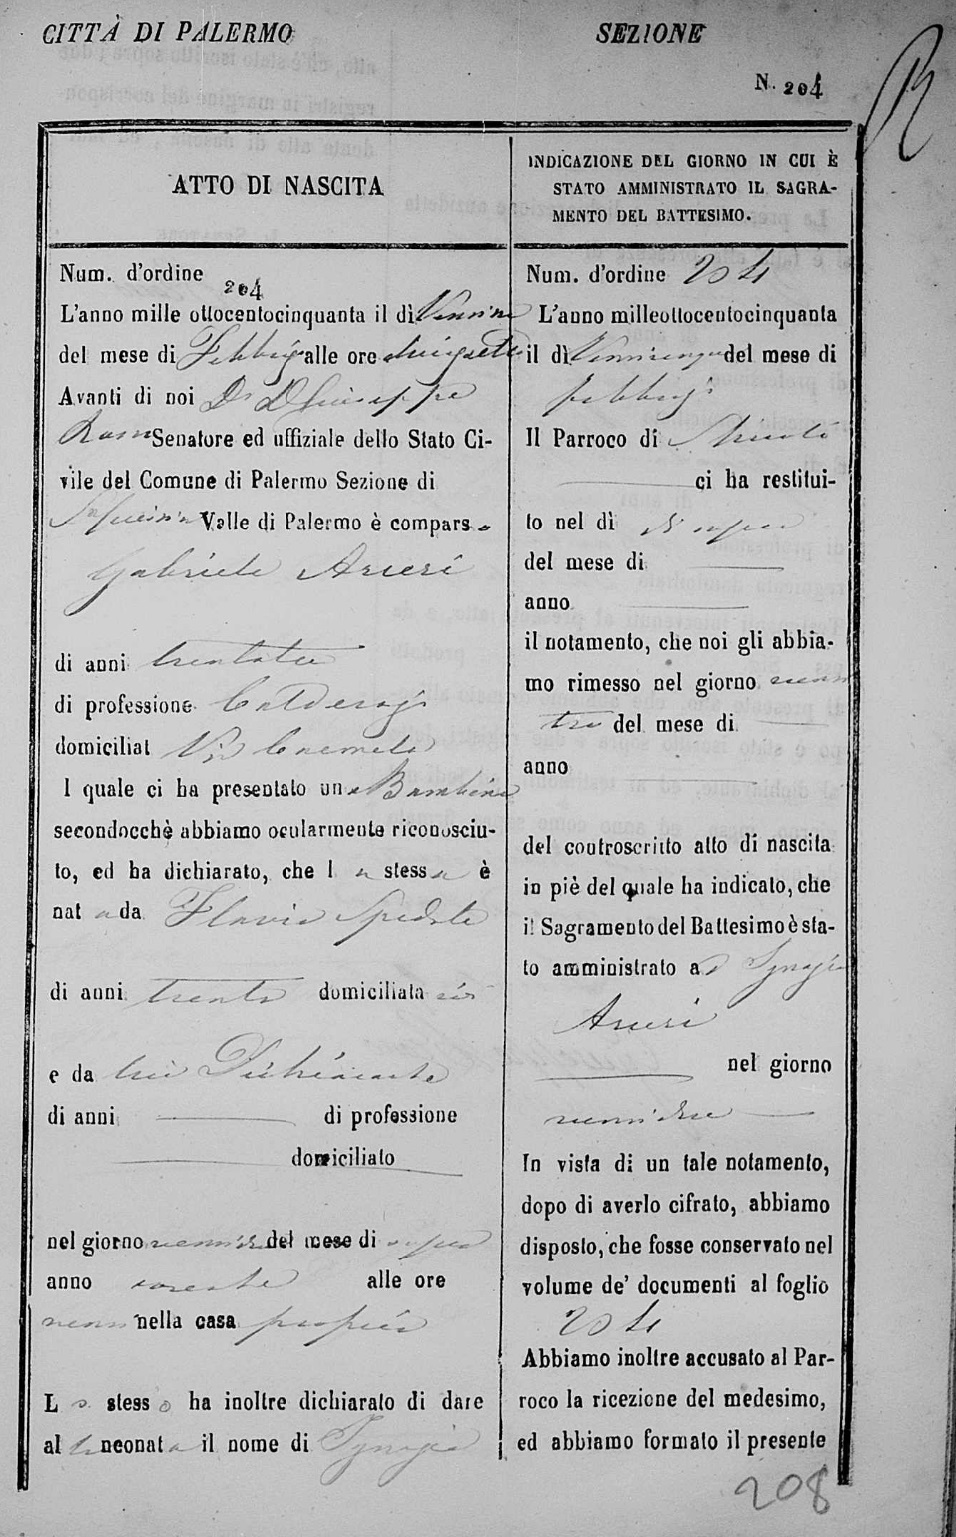 CITTÀ DI PALERMO
SEZIONE
N. 204
ATTO DI NASCITA
Num. d'ordine
204
L'anno mille ottocentocinquanta il dì
del mese di Febbrajo alle ore
Avanti di noi Dn D Giuseppe
Senatore ed uffiziale dello Stato Ci-
vile del Comune di Palermo Sezione di
Valle di Palermo è compars
Gabriele Arceri
di anni trentotto
di professione
domiciliat Via
I quale ci ha presentato una Bambina
secondocchè abbiamo ocularmente riconosciu-
to, ed ha dichiarato, che l a stessa è
nat a da Flavia Spedale
di anni trenta domiciliata ivi
e da lui Dichiarante
di anni di professione
domiciliato
nel giorno del mese di
anno corrente alle ore
nella casa propria
L o stess o ha inoltre dichiarato di dare
al la neonat a il nome di Ignazia
INDICAZIONE DEL GIORNO IN CUI È
STATO AMMINISTRATO IL SAGRA-
MENTO DEL BATTESIMO.
Num. d'ordine 204
L'anno milleottocentocinquanta
il dì del mese di
febbrajo
Il Parroco di
ci ha restitui-
to nel dì di sopra
del mese di
anno
il notamento, che noi gli abbia-
mo rimesso nel giorno venti
tre del mese di
anno
del controscritto atto di nascita
in piè del quale ha indicato, che
il Sagramento del Battesimo è sta-
to amministrato ad Ignazia
Arceri
nel giorno
In vista di un tale notamento,
dopo di averlo cifrato, abbiamo
disposto, che fosse conservato nel
volume de' documenti al foglio
204
Abbiamo inoltre accusato al Par-
roco la ricezione del medesimo,
ed abbiamo formato il presente
208